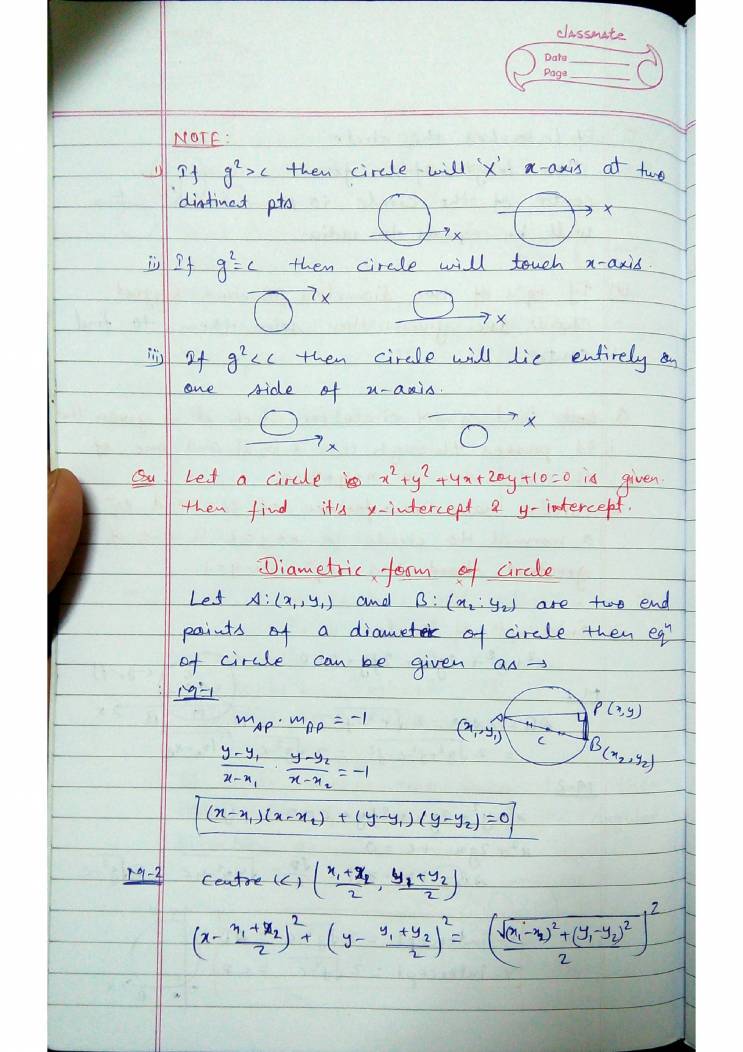 classmate
Date
Page
NOTE:
i) If g²>c then circle will 'X' x-axis at two
distinct pts
X X
ii) If g²=c then circle will touch x-axis.
X X
iii) If g²<c then circle will lie entirely on
one side of x-axis.
X X
Qu Let a circle is x²+y²+4x+20y+10=0 is given.
then find it's x-intercept & y-intercept.
Diametric form of circle
Let A:(x₁,y₁) and B:(x₂:y₂) are two end
points of a diameter of circle then eqⁿ
of circle can be given as →
M-1
m_AP · m_BP = -1
(x₁,y₁) A C P(x,y) B(x₂,y₂)
(y-y₁)/(x-x₁) · (y-y₂)/(x-x₂) = -1
(x-x₁)(x-x₂) + (y-y₁)(y-y₂)=0
M-2 Centre (C) ((x₁+x₂)/2, (y₁+y₂)/2)
(x-(x₁+x₂)/2)² + (y-(y₁+y₂)/2)² = (√((x₁-x₂)²+(y₁-y₂)²)/2)²